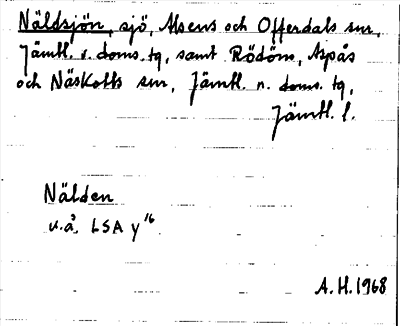 Näldsjön, sjö, Alsens och Offerdals snr,
Jämtl. v. doms. tg, samt Rödöns, Aspås
och Näskotts snr, Jämtl. n. doms. tg,
Jämtl. l.
Nälden
u.å. LSA y 16
A.H. 1968